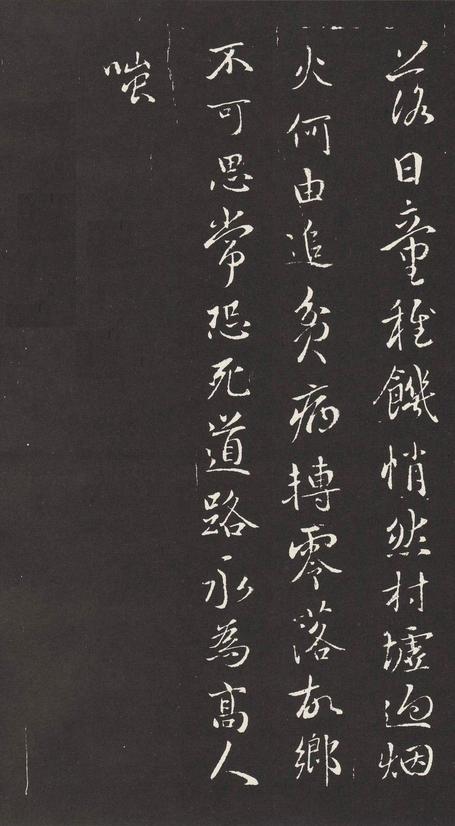 落日童稚饑悄然村墟迥烟
火何由追貧病轉零落故鄉
不可思常恐死道路永為高人
嗤